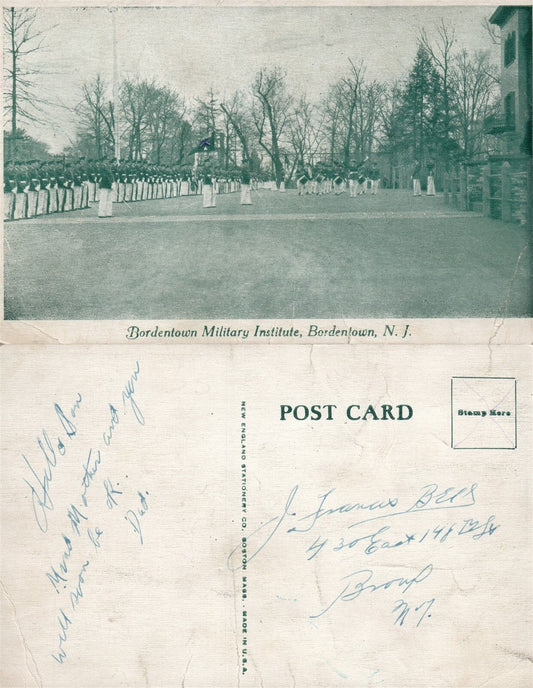 Bordentown Military Institute, Bordentown, N. J.
Hello Son
Mind Mother and you
will soon be K.
Dad.
NEW ENGLAND STATIONERY CO. BOSTON MASS. - MADE IN U.S.A.
POST CARD
Stamp Here
J. Francis
430 East 148 St
Bronx
N.Y.